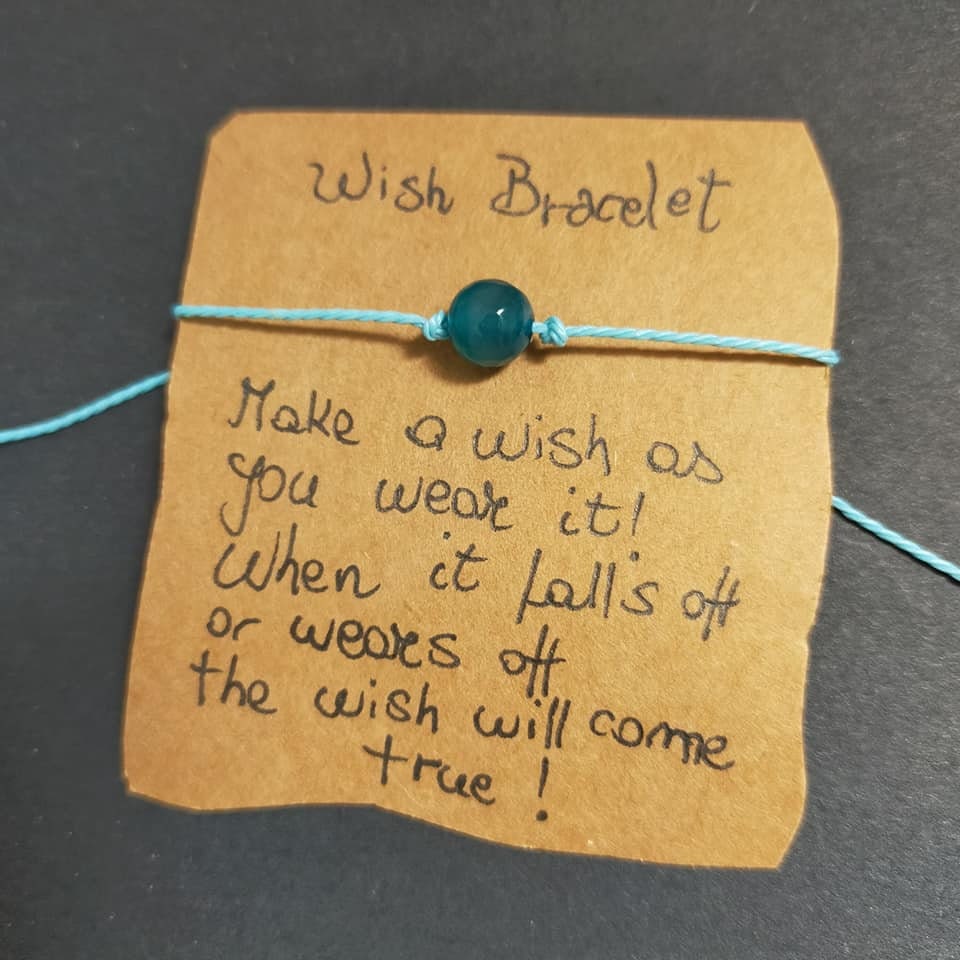 Wish Bracelet
Make a wish as
you wear it!
When it falls off
or wears off
the wish will come
true!